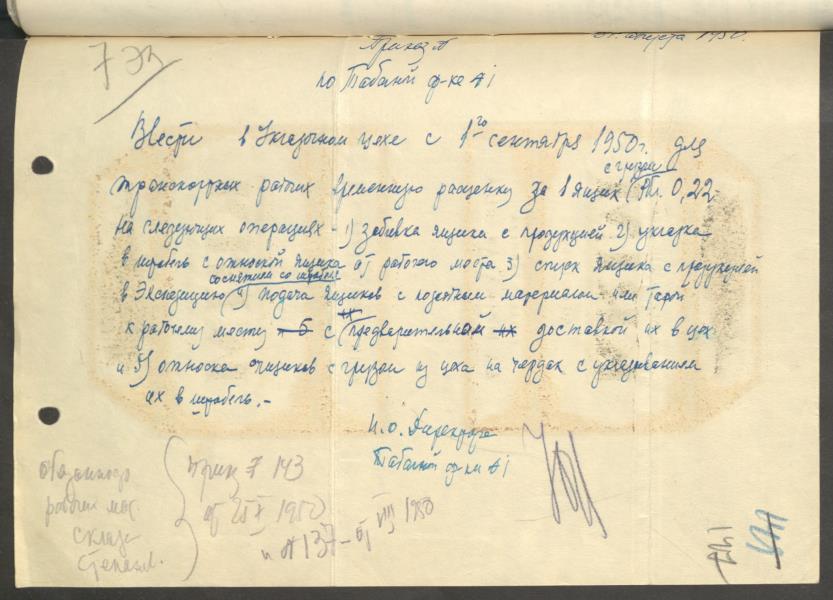 7 Эк
Приказ №
августа 1950.
по Табачной ф-ке №1
Ввести в Укладочном цехе с 1го сентября 1950г. для
с грузом
транспортных рабочих временную расценку за 1 ящик Рбл. 0,22
на следующих операциях - 1) забивка ящика с продукцией 2) укладка
в штабель с отноской ящика от рабочего места 3) спуск ящика с продукцией
со снятием со штабеля
в Экспедицию 4) подача ящиков с материалом или тарой
к рабочему месту с предварительной доставкой их в цех
и 5) относка ящиков с грузом из цеха на чердак с укладыванием
их в штабель.-
И.о. Директора
Табачной ф-ки №1
приказ 143
от 25 X 1950
и № 137 - от VIII 1950
рабочих
склада